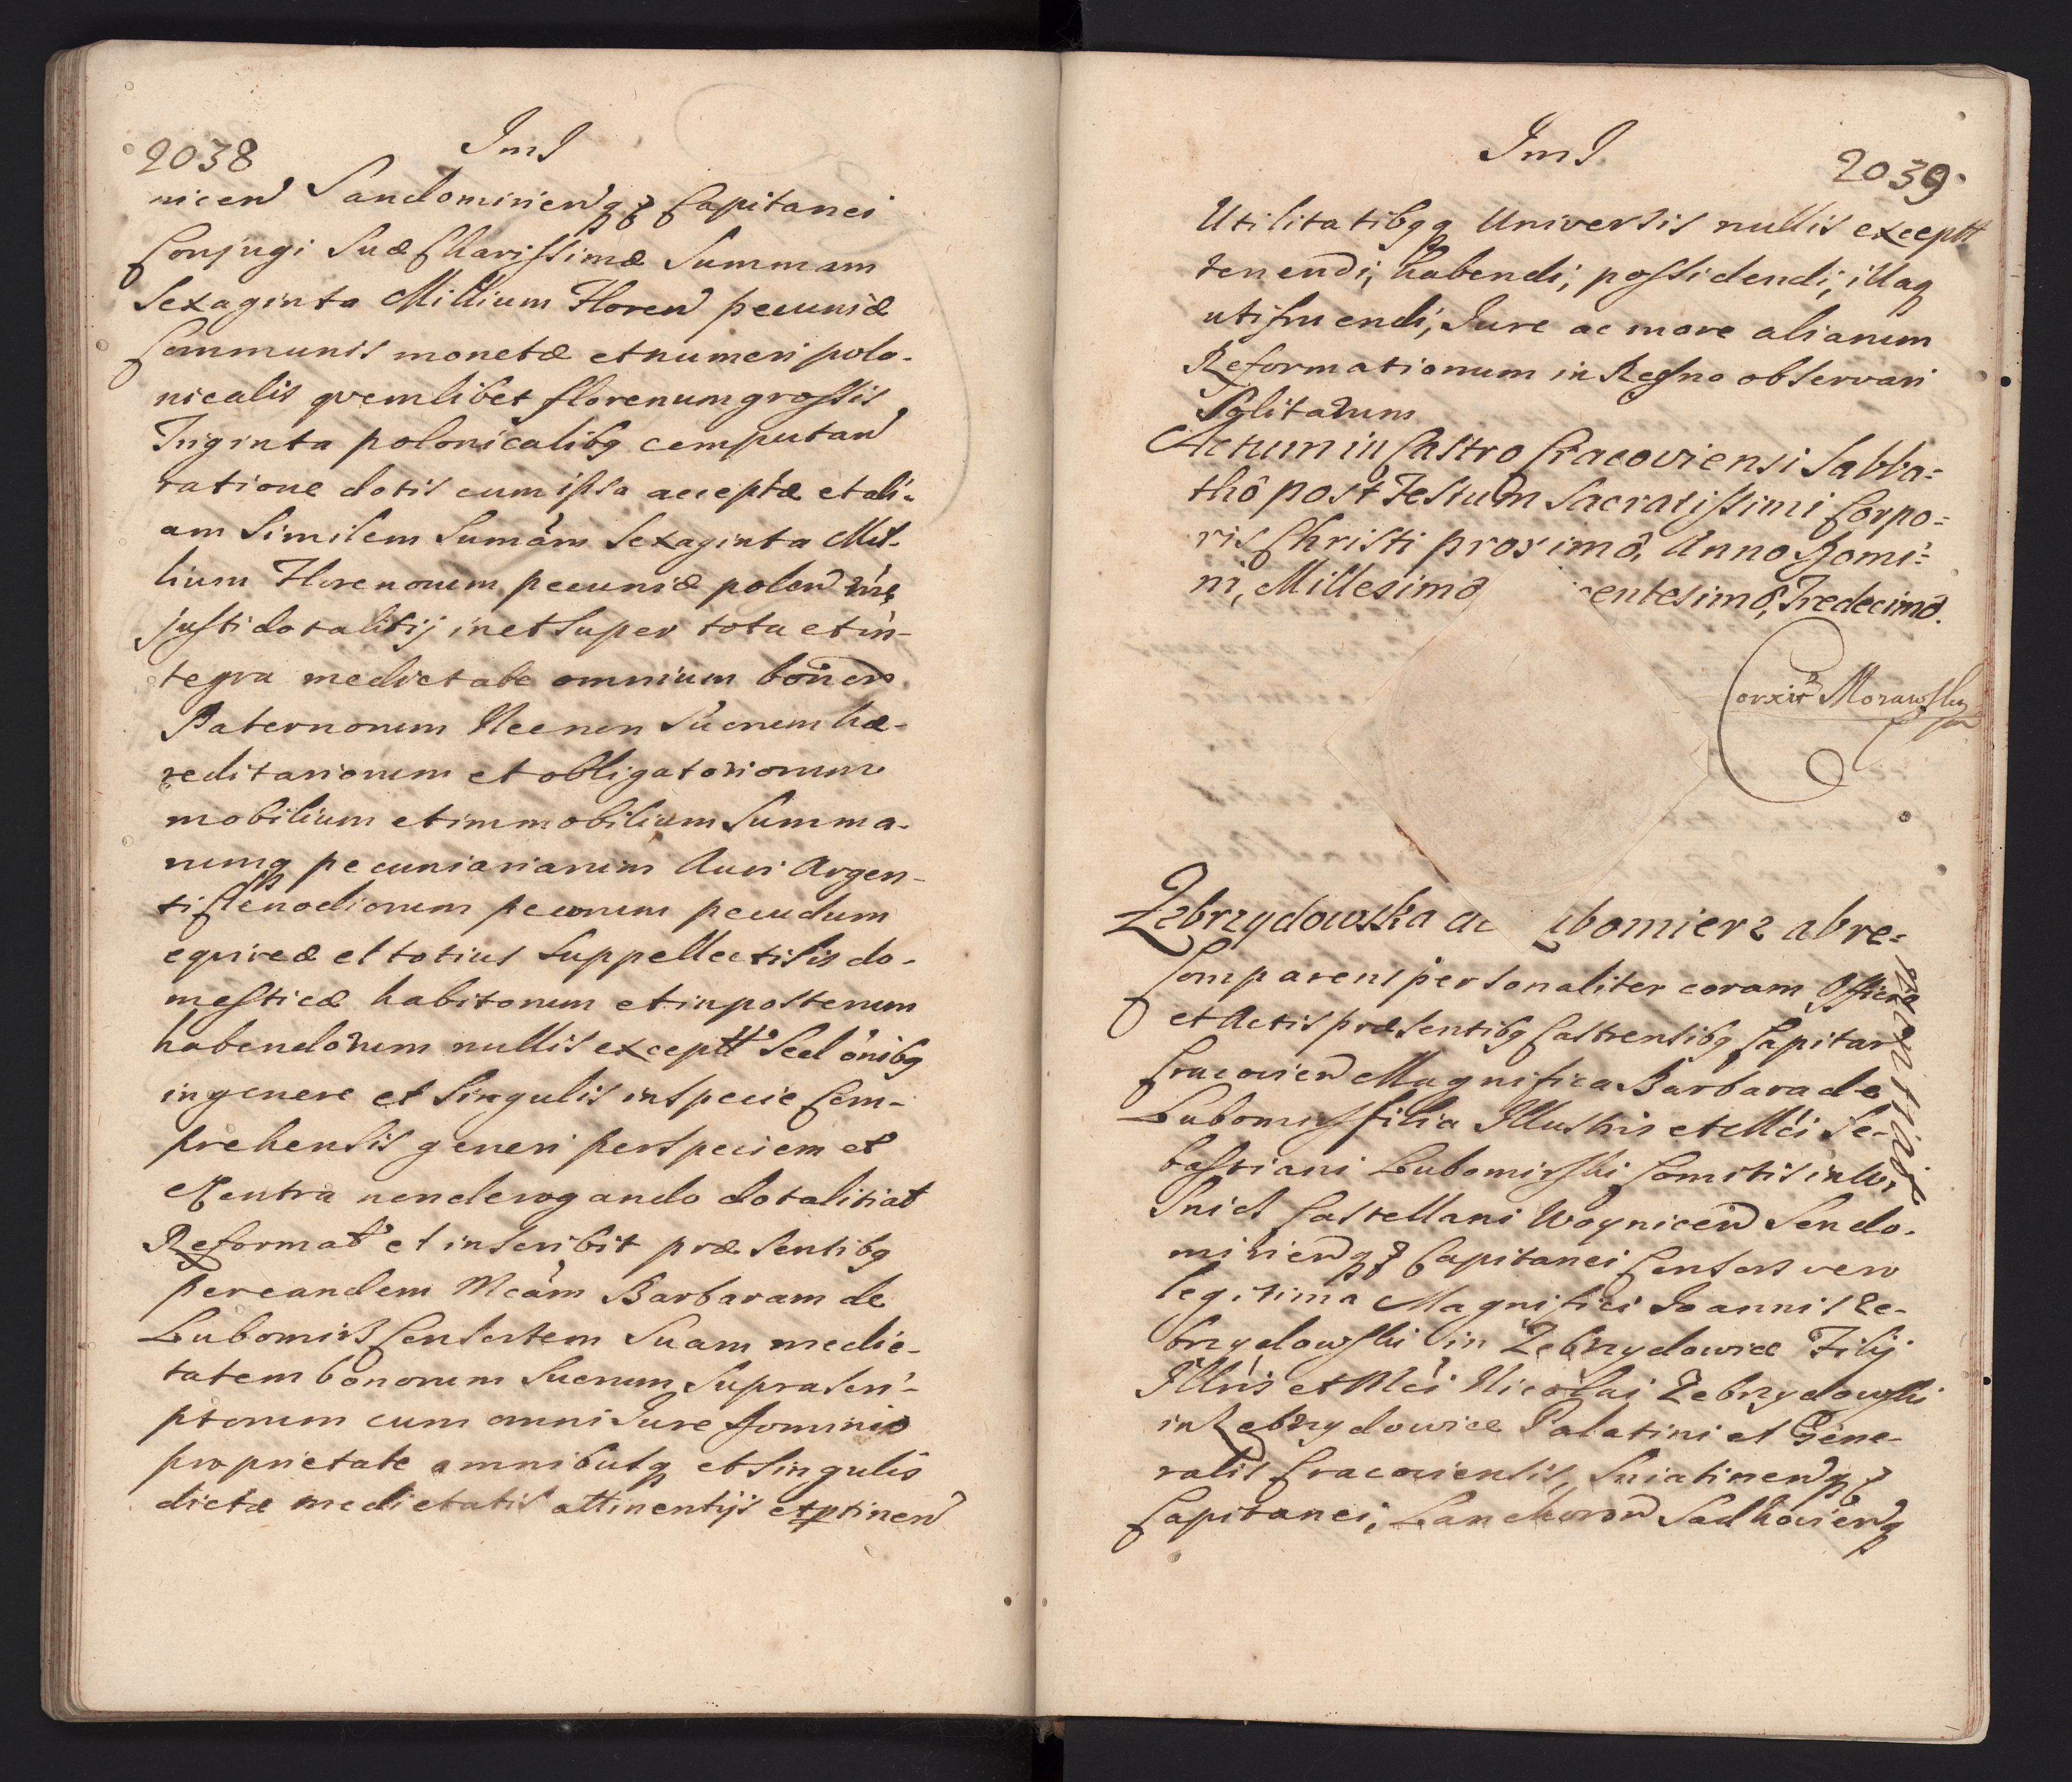 2038
JmJ
nicen Sandomirienqz Capitanei
Conjugi Suæ Charissimæ Summam
Sexaginta Millium Floren pecuniæ
Communis monetæ et numeri polo-
nicalis qvemlibet florenum grossis
Triginta polonicalibq computan
ratione dotis cum ipsa acceptæ et ali-
am Similem Sumãm Sexaginta Mil-
lium Florenorum pecuniæ polon
justi dotalitij in et Super tota et in-
tegra medietate omnium bonon
Paternorum Necnon Suorum hæ-
reditariorum et obligatoriorum
mobilium et immobilium Summa-
rumq pecuniariarum Auri Argen-
ti Clenodiorum pecorum pecudum
equireæ et totius Suppellectilis do-
mesticæ habitorum et in posterum
habendorum nullis exceptt Sed õnibq
in genere et Singulis in Specie Com-
prehensis generi per Speciem et
Econtra non derogando dotalitiat
Reformat et inscribit præsentibq
per eandem Mcãm Barbaram de
Lubomirz Consortem Suam medie-
tatem bonorum Suorum Suprascri-
ptorum cum omni Jure Dominio
proprietate omnibusq et Singulis
dictæ medietatis attinentijs et ptinen
JmJ
2039
Utilitatibqq Universis nullis exceptt
tenendi, habendi, possidendi, illaq
utifruendi, Jure ac more aliarum
Reformationum in Regno observari
Solitarum
Actum in Castro Cracoviensi Sabba-
thô post Festum Sacratissimi Corpo-
ris Christi proximô, Anno Domi-
ni, Millesimô centesimô, Tredecimô.
Corxit Morawsky
Zebrzydowska a Lubomierz abre-
nuntiat
Comparens personaliter coram Officio
et Actis præsentibq Castrensibq Capitan
Cracovien Magnifica Barbara de
Lubomirz filia Illustris et Mci Se-
bastiani Lubomirski Comitis in Wi-
snicz Castellani Woynicen Sendo-
mirienqz Capitanei Consors vero
legitima Magnifici Joannis Ze-
brzydowski in Zebrzydowice Filij
Illris et Mci Nicolai Zebrzydowski
in Zebrzydowice Palatini et Gene-
ralis Cracoviensis, Sniatinenqz
Capitanei, Lanckoron Sadkovienq